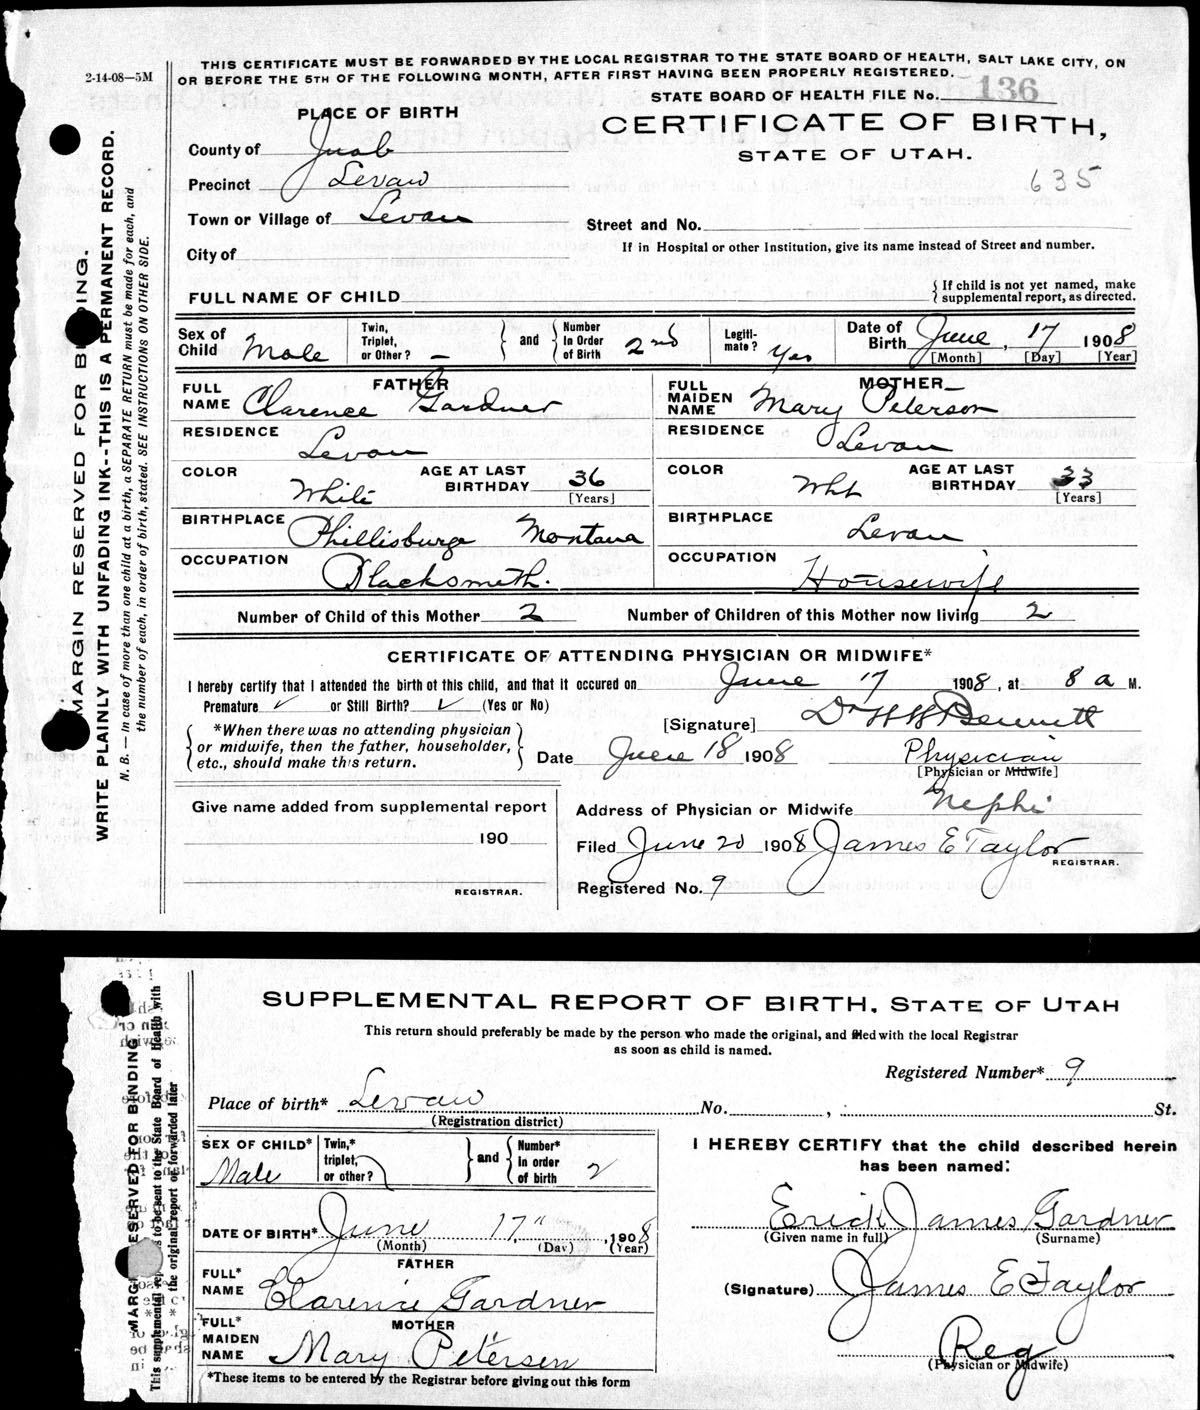 2-14-08—5M
THIS CERTIFICATE MUST BE FORWARDED BY THE LOCAL REGISTRAR TO THE STATE BOARD OF HEALTH, SALT LAKE CITY, ON
OR BEFORE THE 5TH OF THE FOLLOWING MONTH, AFTER FIRST HAVING BEEN PROPERLY REGISTERED.
STATE BOARD OF HEALTH FILE No. 136
PLACE OF BIRTH
CERTIFICATE OF BIRTH,
STATE OF UTAH.
635
County of Juab
Precinct Levan
Town or Village of Levan
Street and No.
City of
If in Hospital or other Institution, give its name instead of Street and number.
FULL NAME OF CHILD
{ If child is not yet named, make
supplemental report, as directed.
Sex of Child Male
Twin, Triplet, or Other? –
and
Number In Order of Birth 2nd
Legiti- mate? Yes
Date of Birth June, 17 1908
[Month] [Day] [Year]
FATHER
FULL NAME Clarence Gardner
MOTHER
FULL MAIDEN NAME Mary Peterson
RESIDENCE Levan
RESIDENCE Levan
COLOR White
AGE AT LAST BIRTHDAY 36
[Years]
COLOR Wht
AGE AT LAST BIRTHDAY 33
[Years]
BIRTHPLACE Phillisburge Montana
BIRTHPLACE Levan
OCCUPATION Blacksmith.
OCCUPATION Housewife
Number of Child of this Mother 2
Number of Children of this Mother now living 2
CERTIFICATE OF ATTENDING PHYSICIAN OR MIDWIFE*
I hereby certify that I attended the birth of this child, and that it occured on June 17 1908, at 8 a M.
Premature ✓ or Still Birth? ✓ (Yes or No)
[Signature] Dr W W Bennett
{ *When there was no attending physician
or midwife, then the father, householder,
etc., should make this return. }
Date June 18 1908
Physician
[Physician or Midwife]
Give name added from supplemental report
190
REGISTRAR.
Address of Physician or Midwife Nephi
Filed June 20 1908 James E Taylor
REGISTRAR.
Registered No. 9
MARGIN RESERVED FOR BINDING.
WRITE PLAINLY WITH UNFADING INK--THIS IS A PERMANENT RECORD.
N. B. — In case of more than one child at a birth, a SEPARATE RETURN must be made for each, and
the number of each, in order of birth, stated. SEE INSTRUCTIONS ON OTHER SIDE.
SUPPLEMENTAL REPORT OF BIRTH, STATE OF UTAH
This return should preferably be made by the person who made the original, and filed with the local Registrar
as soon as child is named.
Registered Number* 9
Place of birth* Levan No. , St.
(Registration district)
SEX OF CHILD* Male
Twin,* triplet, or other?
and
Number* in order of birth 2
I HEREBY CERTIFY that the child described herein
has been named:
DATE OF BIRTH* June 17, 1908
(Month) (Day) (Year)
Erick James Gardner
(Given name in full) (Surname)
FATHER
FULL* NAME Clarence Gardner
(Signature) James E Taylor
MOTHER
FULL* MAIDEN NAME Mary Petersen
Reg
(Physician or Midwife)
*These items to be entered by the Registrar before giving out this form
MARGIN RESERVED FOR BINDING
This supplemental report is to be sent to the State Board of Health with
the original report or forwarded later